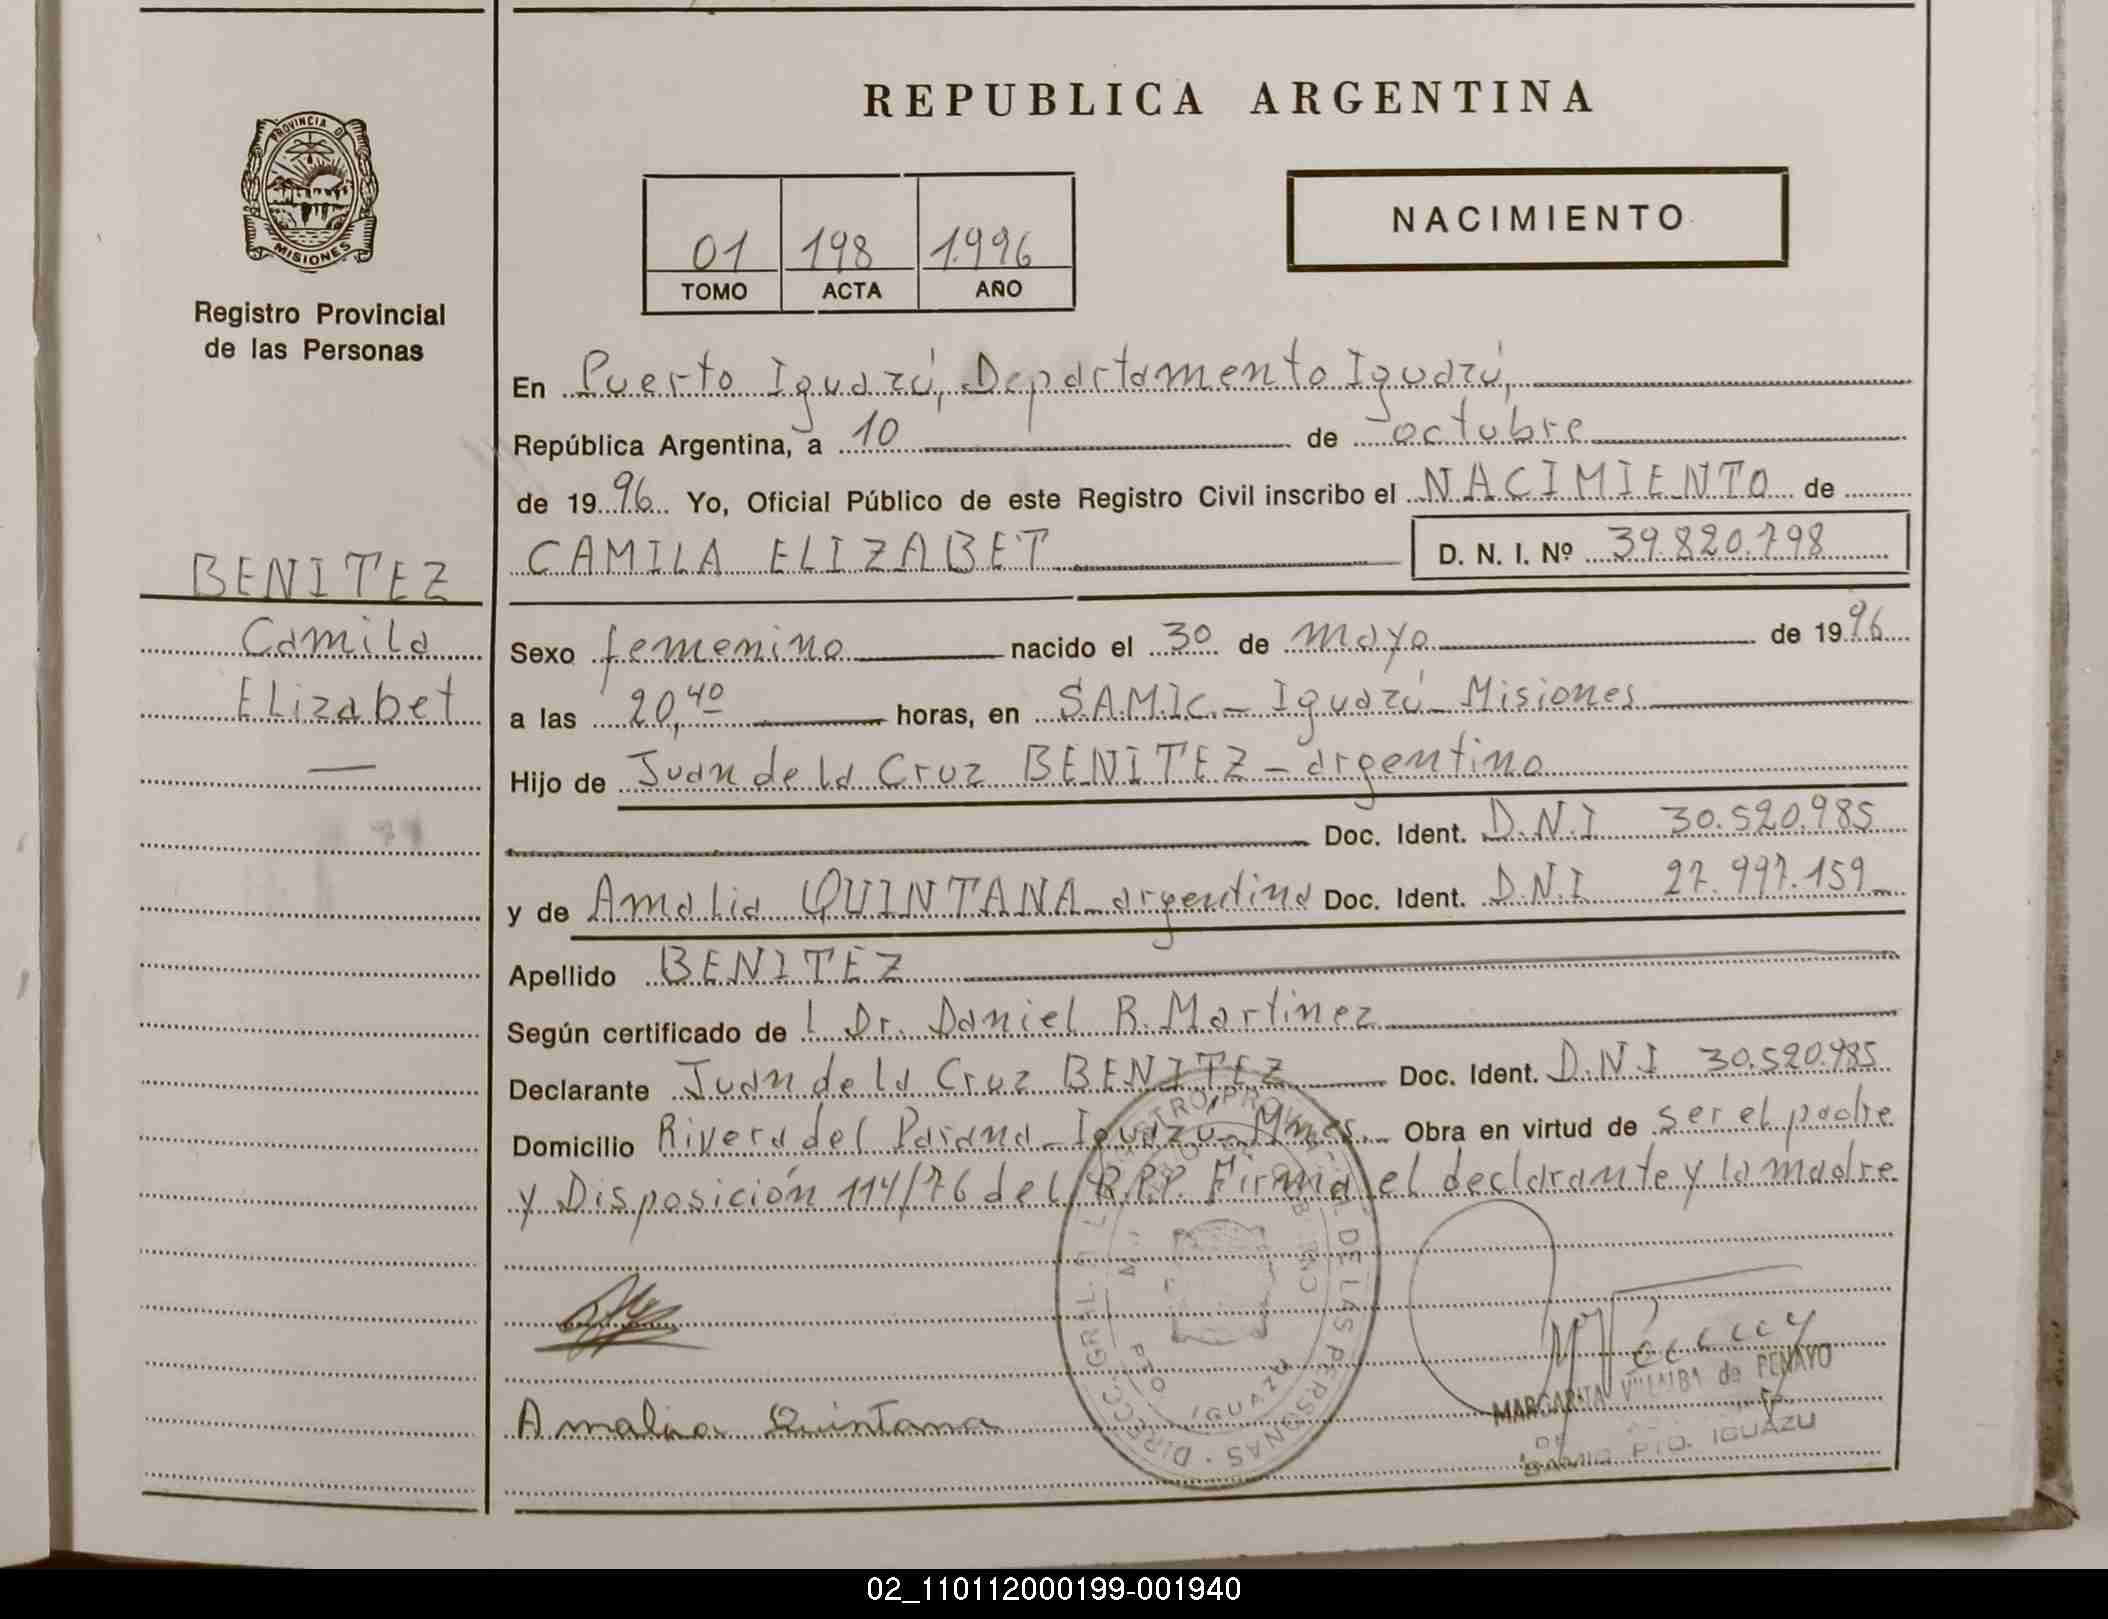 REPUBLICA ARGENTINA
PROVINCIA D
MISIONES
Registro Provincial
de las Personas
01 198 1.996
TOMO ACTA AÑO
NACIMIENTO
En Puerto Iguazú, Departamento Iguazú,
República Argentina, a 10 de octubre
de 1996 Yo, Oficial Público de este Registro Civil inscribo el NACIMIENTO de
CAMILA ELIZABET D. N. I. Nº 39.820.798
BENITEZ
Camila
Elizabet
Sexo femenino nacido el 30 de mayo de 1996
a las 20,40 horas, en S.A.M.I.c.- Iguazú - Misiones
Hijo de Juan de la Cruz BENITEZ - argentino
Doc. Ident. D.N.I 30.520.985
y de Amalia QUINTANA - argentina Doc. Ident. D.N.I 27.997.159
Apellido BENITEZ
Según certificado de l Dr. Daniel R. Martinez
Declarante Juan de la Cruz BENITEZ Doc. Ident. D.N.I 30.520.985
Domicilio Rivera del Parana - Iguazu - Mnes. Obra en virtud de ser el padre
y Disposición 114/76 del R.P.P. Firma el declarante y la madre
DIRECC. GRAL. DE LAS PERSONAS
IGUAZU
Amalia Quintana
MARGARITA VILLALBA de PENAYO
PTO. IGUAZU
02_110112000199-001940